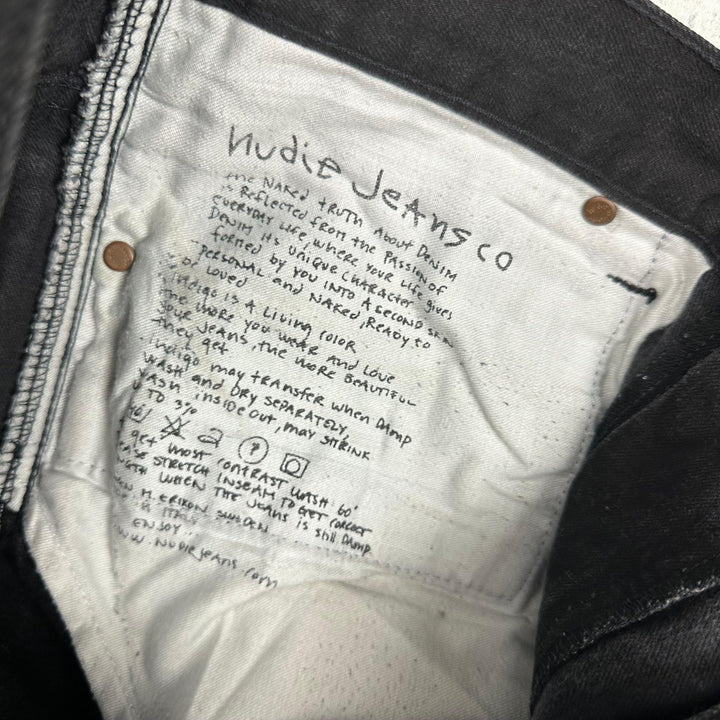 Nudie Jeans co
The NAKED TRUTH About DENIM
is Reflected from the PASSION of
EVERYDAY LIFE, WHERE YOUR LIFE gives
DENIM ITS UNIQUE CHARACTER
formed BY YOU INTO A SECOND SKIN
PERSONAL and NAKED, READY TO
Loved
Indigo is A Living color
THE MORE YOU WEAR AND LOVE
YOUR JEANS, THE MORE BEAUTIFUL
They get
Indigo may TRANSFER WHEN DAMP
WASH AND DRY SEPARATELY
WASH inside out, may SHRINK
TO 3%
P
get MOST CONTRAST WASH 60°
STRETCH INSEAM TO GET CORRECT
WHEN THE JEANS is still Damp
M. ERIXON SWEDEN
ITALY
ENJOY.
WWW.NudieJeans.com